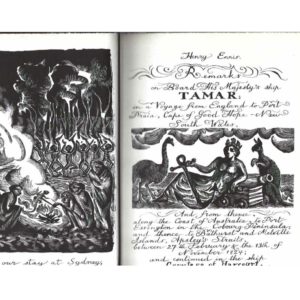 our stay at Sydney,
Henry Ennis.
Remarks
on Board His Majesty's ship
TAMAR
in a Voyage from England to Port
Praia, Cape of Good Hope – New
South Wales,
And from thence
along the Coast of Australia to Port
Essington in the Cobourg Peninsula;
and thence to Bathurst and Melville
Islands, Apsley's Straits,
between 27 th February & the 13th of
November 1824;
and continued in the ship
Countess of Harcourt